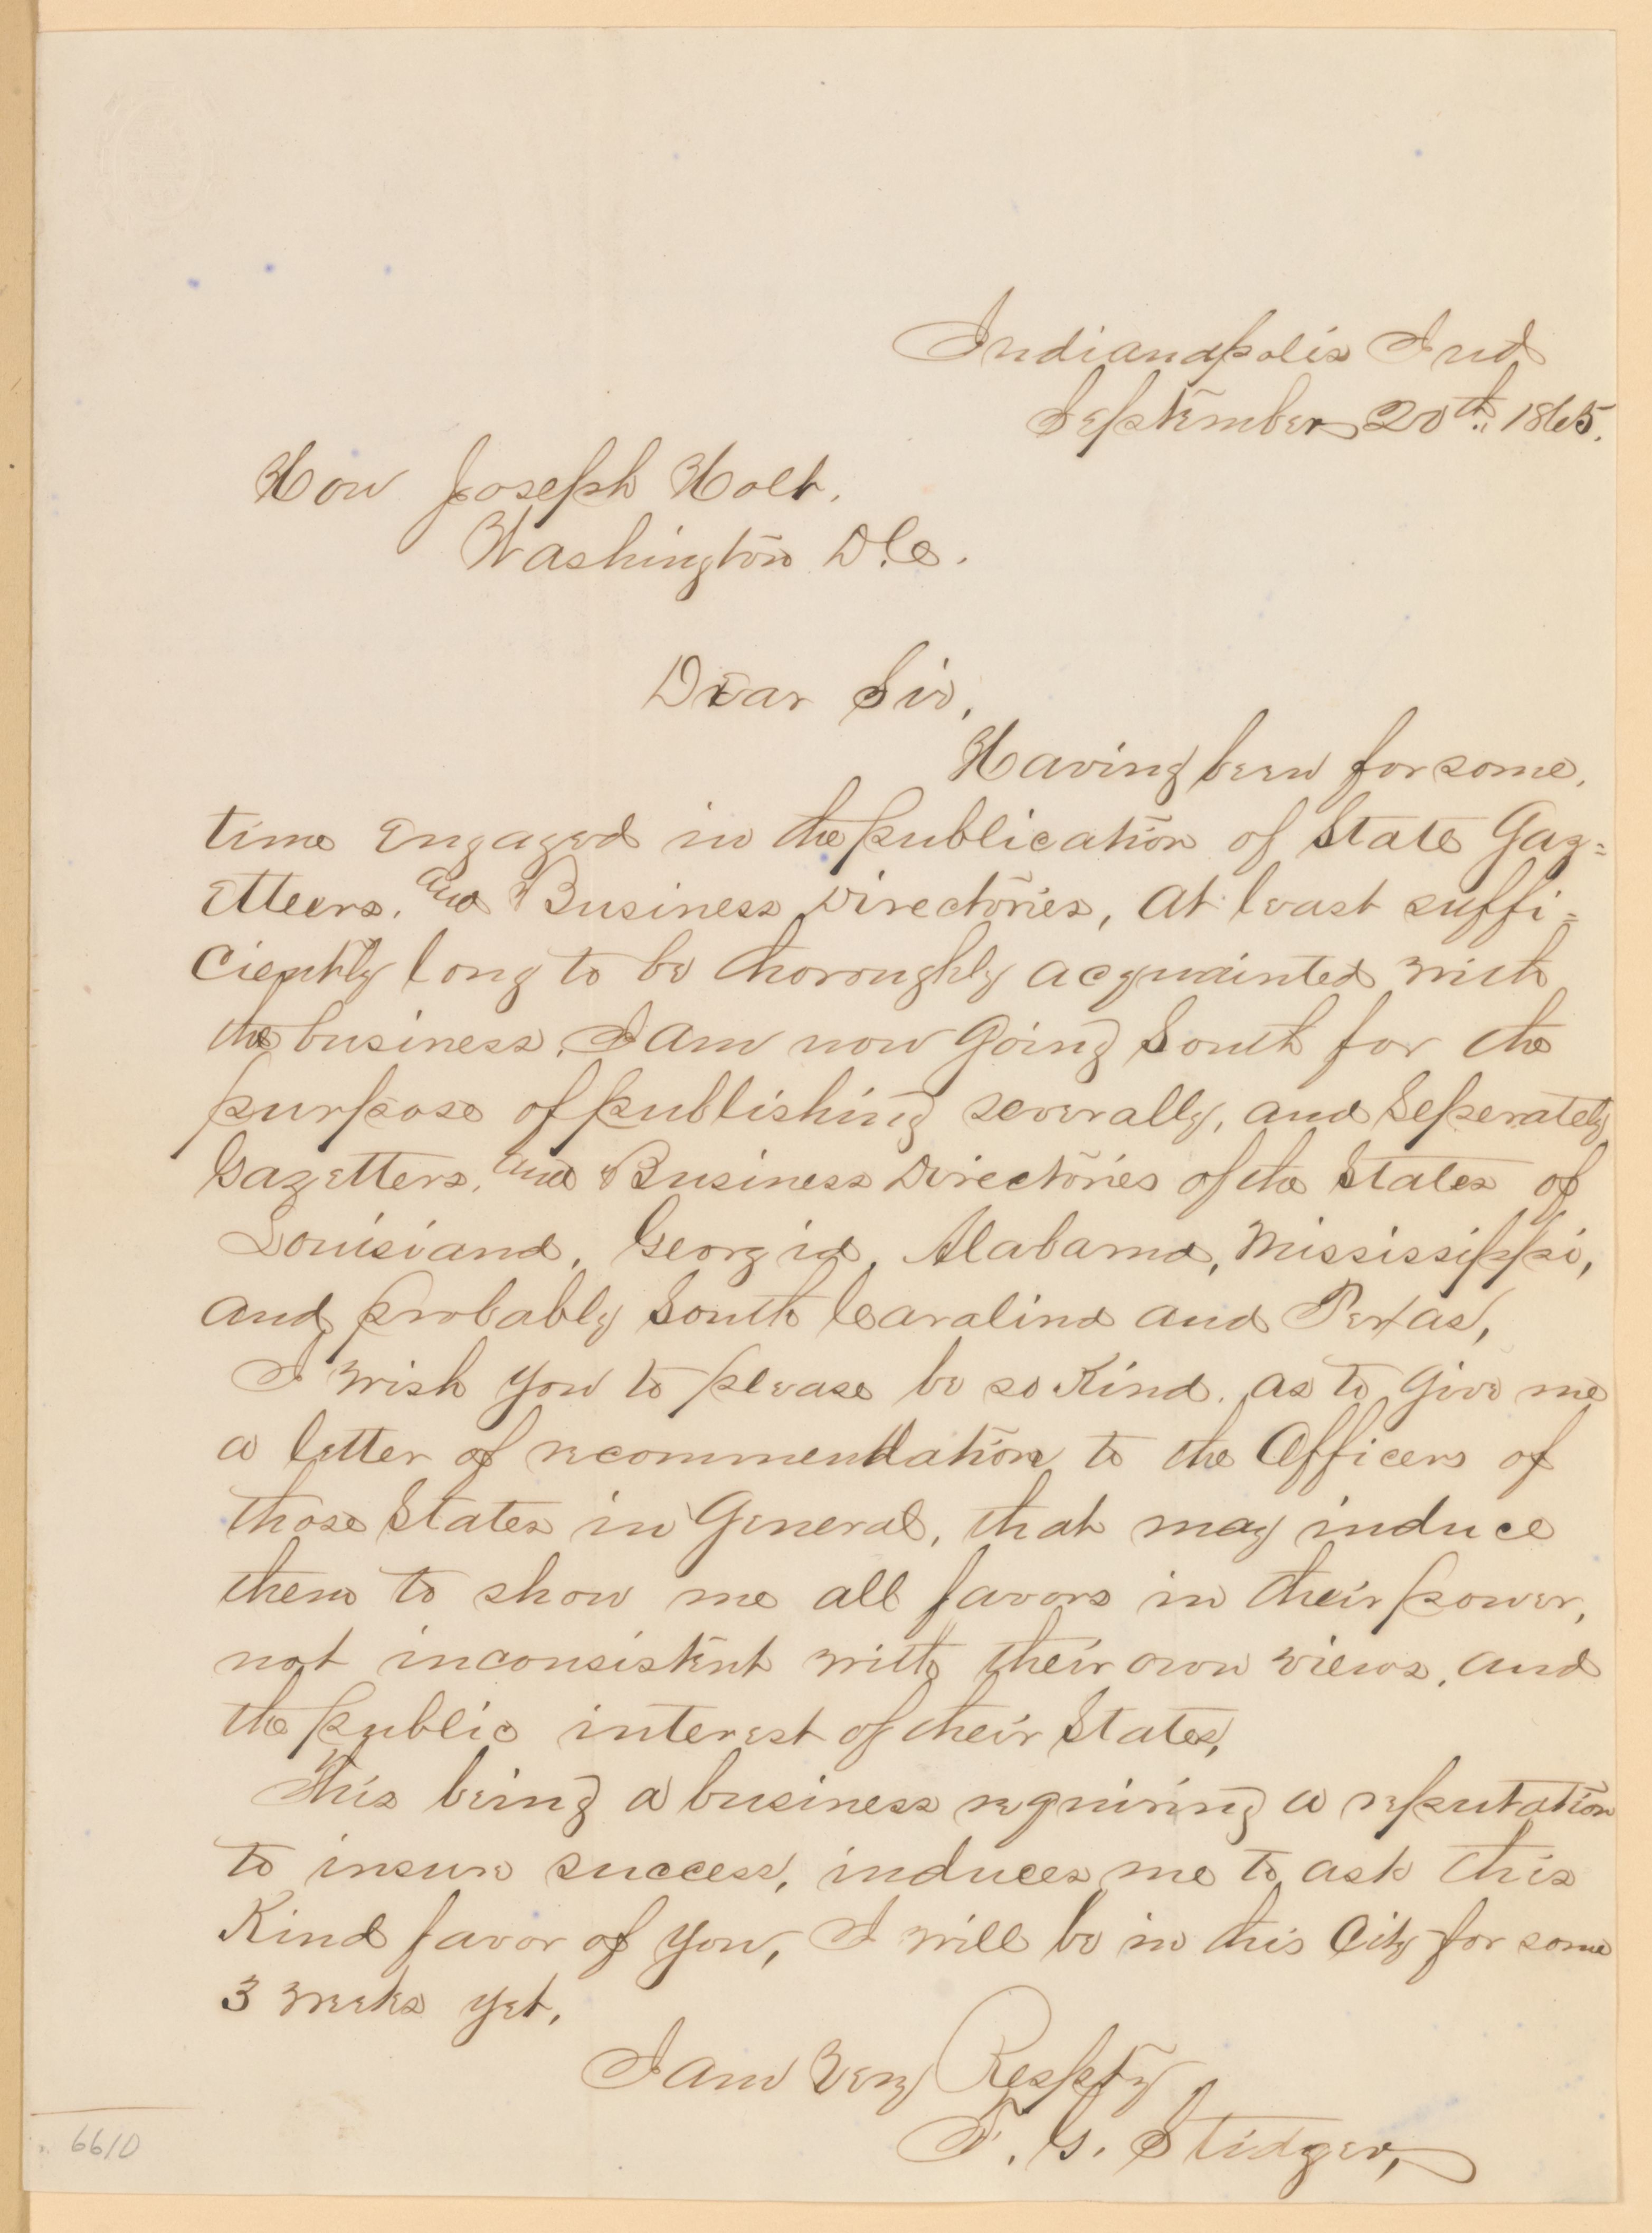 Indianapolis Ind
September 20th 1865.
Hon Joseph Holt.
Washington D.C.
Dear Sir,
Having been for some
time engaged in the publication of State Gaz=
etteers. and Business Directories, at least suffi=
ciently long to be thoroughly acquainted with
the business. I am now going South for the
purpose of publishing severally, and Seperately
Gazetters. and Business Directories of the States of
Louisiana, Georgia, Alabama, Mississippi,
and probably South Caralina and Texas,
I wish you to please be so Kind. as to give me
a letter of recommendation to the Officers of
those States in General, that may induce
them to show me all favors in their power,
not inconsistent with their own views, and
the public interest of their States,
This being a business requiring a reputation
to insure success, induces me to ask this
Kind favor of you, I will be in this City for some
3 weeks yet,
I am Very Respty
F. G. Stidger,
6610